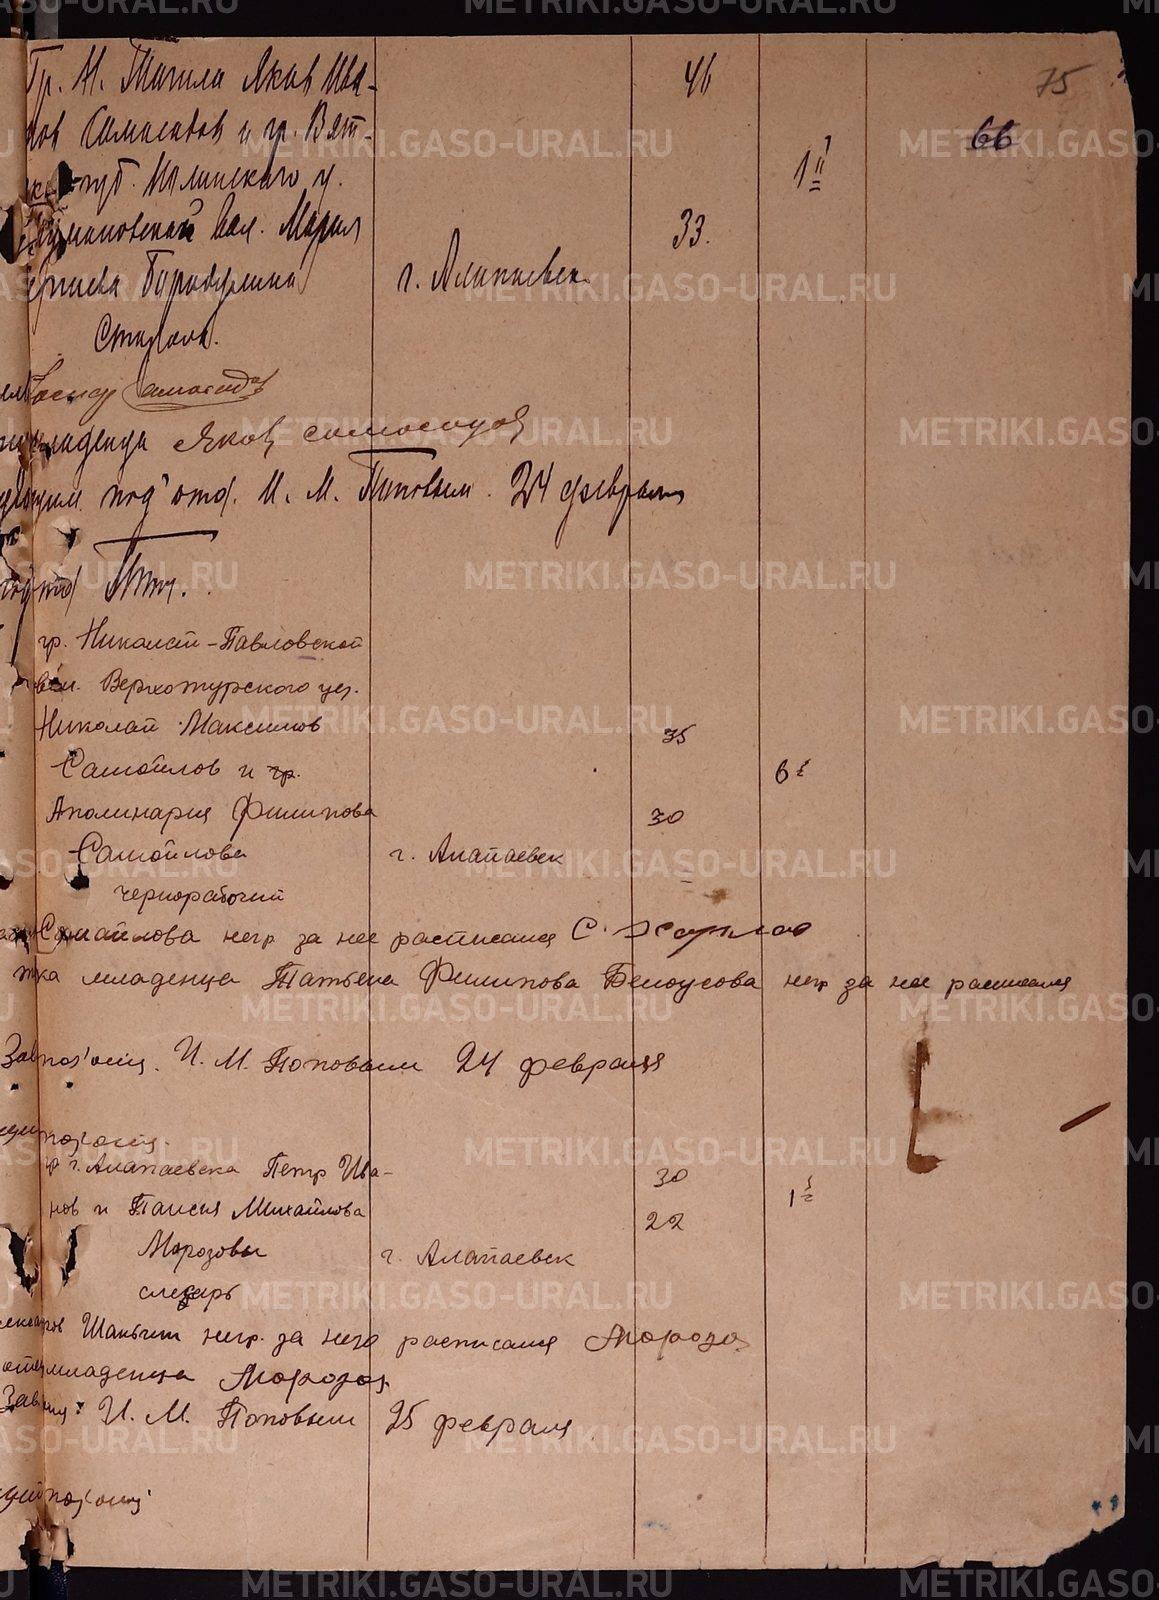 75
66
Гр. Н. Тагила Яков Ива-
нов Самосадов и гр. Вят-
губ. Нолинскаго у.
вол. Мария
г. Алапаевск
46
33.
1
Столяр.
Самосадов
младенца Яков самосадов
под'отд. И. М. Поповым. 24 февраля
гр. Николай-Павловской
вол. Верхотурского уез.
Николай Максимов
Самойлов и гр.
Аполинария Филипова
Самойлова
г. Алапаевск
чернорабочий
35
30
6
Самайлова негр за нее расписался С.
младенца Татьяна Филипова Белоусова негр за нее расписался
Зав под'отд. И. М. Поповым 24 февраля
под'отд.
гр г. Алапаевска Петр Ива-
нов и Таисия Михайлова
Морозовы
г. Алапаевск
слесарь
30
22
1
негр. за него расписался Морозов
младенца Морозов
Зав : И. М. Поповым 25 февраля
под'отд
METRIKI.GASO-URAL.RU